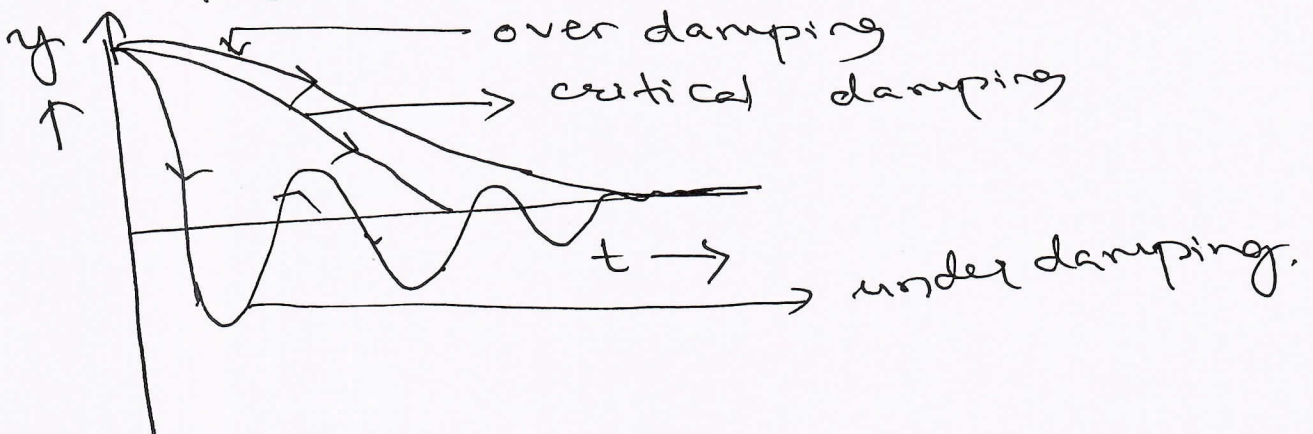 y
over damping
critical damping
t
under damping.